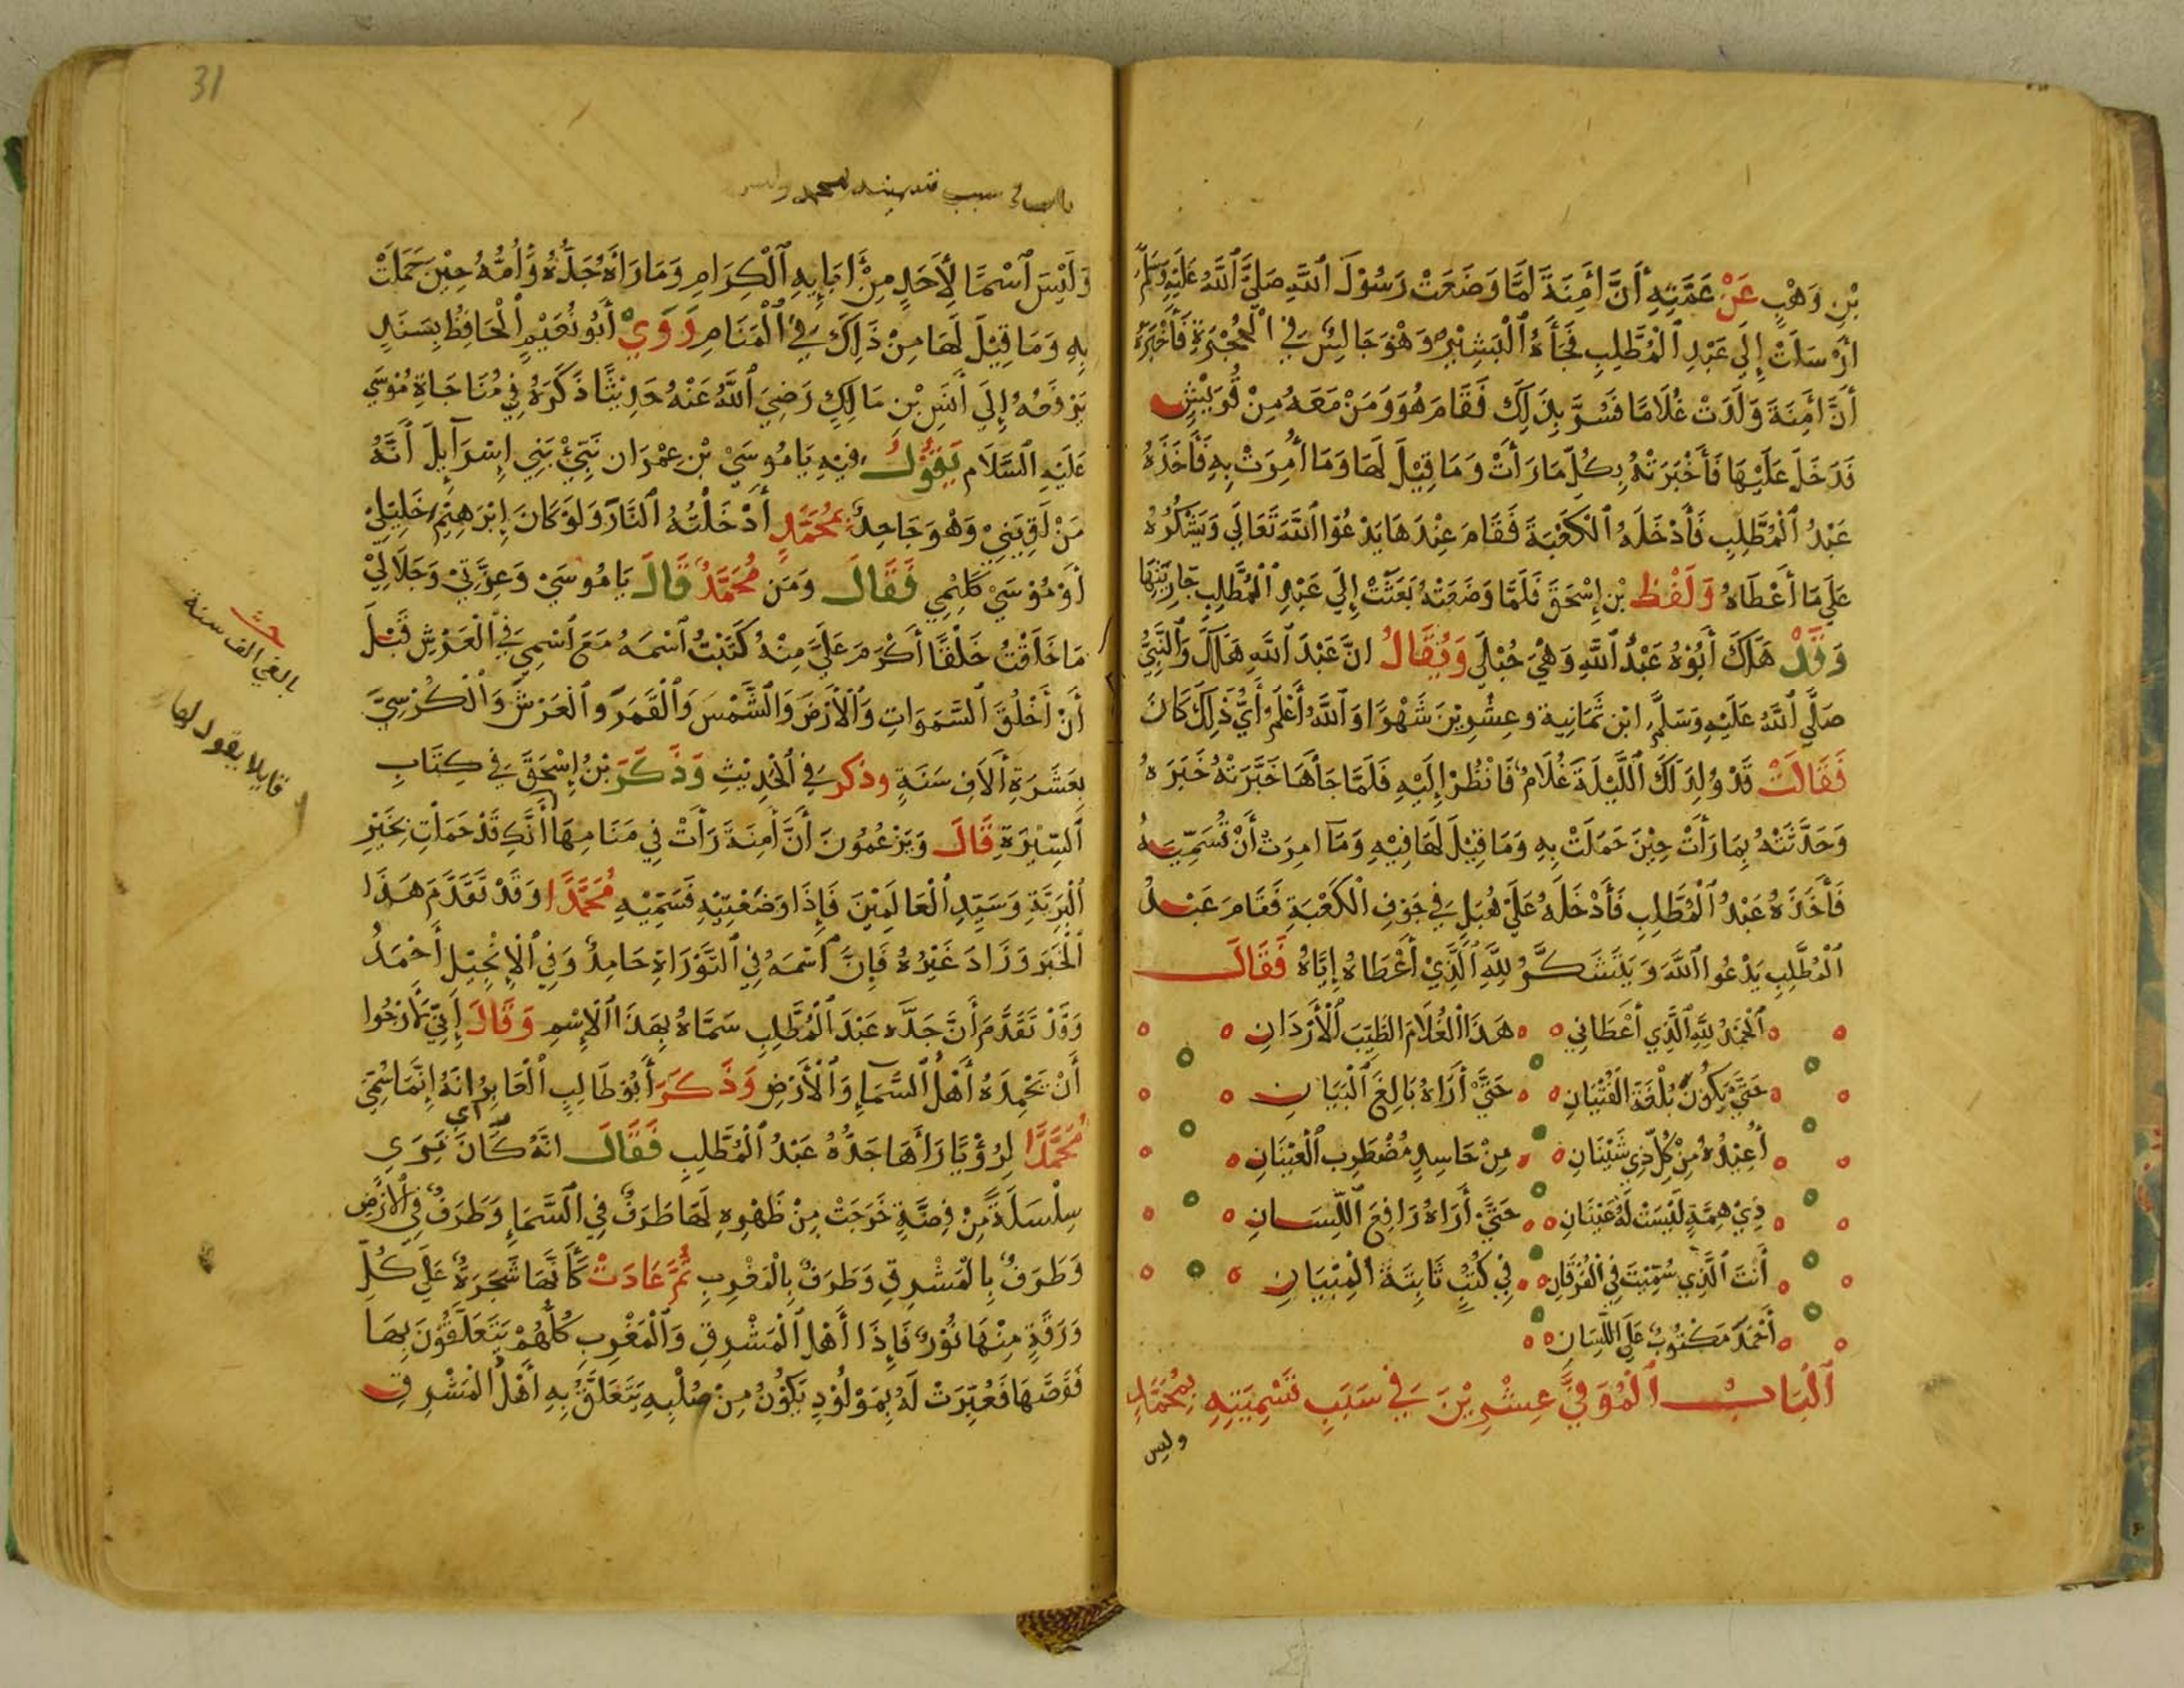 بْنِ وَهْبٍ عَنْ عَمَّتِهِ أَنَّ أَمِنَةَ لَمَّا وَضَعَتْ رَسُوْلَ اللَّهِ صَلَّيَ اللَّهُ عَلَيْهِ وَسَلَّمَ
ارْسَلَتْ إِلَي عَبْدِ الْمُطَّلِبِ فَجَأَهُ الْبَشِيْرُ وَهْوَ جَالِسٌ فِي الْحُجْرَةِ فَأَخْبَرَهُ
أَنَّ أَمِنَةَ وَلَدَتْ غُلَامًا فَسُرَّ بِذَلِكَ فَقَامَ هُوَ وَمَنْ مَعَهُ مِنْ قُرَيْشٍ
فَدَخَلَ عَلَيْهَا فَأَخْبَرَتْهُ بِكُلِّ مَا رَأَتْ وَمَا قِيْلَ لَهَا وَمَا أُمِرَتْ بِهِ فَأَخَذَهُ
عَبْدُ الْمُطَّلِبِ فَأَدْخَلَهُ الْكَعْبَةَ فَقَامَ عِنْدَهَا يَدْعُوْا اللَّهَ تَعَالَي وَيَشْكُرُهُ
عَلَي مَا أَعْطَاهُ وَلَفْظ بْنِ إِسْحَقَ فَلَمَّا وَضَعَتْهُ بَعَثَتْ إِلَي عَبْدِ الْمُطَّلِبِ جَارِيَتَهَا
وَقَدْ هَلَكَ أَبُوْهُ عَبْدُ اللَّهِ وَهْيَ حُبْلَي وَيُقَالُ انَّ عَبْدَ اللَّهِ هَلَكَ وَالنَّبِيُّ
صَلَّي اللَّهُ عَلَيْهِ وَسَلَّمَ ابْن ثَمَانِية وعِشْرِيْنَ شَهْرًا وَاللَّهُ أَعْلَمُ أَيُّ ذَلِكَ كَانَ
فَقَالَتْ قَدْ وُلِدَ لَكَ اللَّيْلَةَ غُلَامٌ فَانْظُرْ إِلَيْهِ فَلَمَّا جَأَهَا خَبَّرَتْهُ خَبَرَهُ
وَحَدَّثَتْهُ بِمَا رَأَتْ حِيْنَ حَمَلَتْ بِهِ وَمَا قِيْلَ لَهَا فِيْهِ وَمَا امِرَتْ أَنْ تُسَمِّيَهُ
فَأَخَذَهُ عَبْدُ الْمُطَّلِبِ فَأَدْخَلَهُ عَلَيْ هُبَلٍ فِي جَوْفِ الْكَعْبَةِ فَقَامَ عَبْدُ
الْمُطَّلِبِ يَدْعُوا اللَّهَ وَيَتَشَكَّرُ لِلَّهِ الَّذِيْ أَعْطَاهُ إِيَّاهُ فَقَالَ
الْحَمْدُ لِلَّهِ الَّذِي أَعْطَانِي هَذَا الْغُلَامَ الطَّيِّبَ الْأَرْدَانِ
حَتَّي يَكُوْنَ بُلْغَةَ الْفِتْيَانِ حَتَّي أَرَاهُ بَالِغَ الْبَيَانِ
أُعِيْذُهُ مِنْ كُلِّ ذِي شَيْنَانِ مِنْ حَاسِدٍ مُضْطَرِبِ الْعَيْنَانِ
ذِيْ هِمَّةٍ لَيْسَتْ لَهُ عَيْنَانِ حَتَّي أَرَاهُ رَافِعَ اللِّسَانِ
أَنْتَ الَّذِي سُمِّيْتَ فِي الْفُرْقَانِ فِي كُتُبٍ ثَابِتَةَ الْمِبْيَانِ
أَحْمَدَ مَكْتُوْبٌ عَلَي اللِّسَانِ
الْبَابُ الْمُوَفِّيَ عِشْرِيْنَ فِي سَبَبِ تَسْمِيَتِهِ بِمُحَمَّدٍ
وليس
31
باب في سبب تسميته بمحمد وليس
وَلَيْسَ اسْمًا لِأَحَدٍ مِنْ أَبَايِهِ الْكِرَامِ وَمَا رَأَهُ جَدُّهُ وَأُمُّهُ حِيْنَ حَمَلَتْ
بِهِ وَمَا قِيْلَ لَهَا مِنْ ذَلِكَ فِي الْمَنَامِ رَوَيْ أَبُو نُعَيْمٍ الْحَافِظُ بِسَنَدٍ
يَرْفَعُهُ إِلَي أَنَسِ بْنِ مَالِكٍ رَضِيَ اللَّهُ عَنْهُ حَدِيْثًا ذَكَرَهُ فِي مُنَاجَاةِ مُوْسَي
عَلَيْهِ السَّلَام يَقُوْلُ فِيْهِ يَامُوسَيْ بْنِ عِمْرَان نَبِيَّ بَنِي إِسْرَآيِلَ أَنَّهُ
مَنْ لَقِيَنِيْ وَهْوَ جَاحِدٌ بِمُحَمَّدٍ أَدْخَلْتُهُ النَّارَ وَلَوْ كَانَ إِبْرَهِيْمُ خَلِيْلِيْ
أَوْ مُوْسَيْ كَلِيْمِي فَقَالَ وَمَن مُحَمَّدٌ قَالَ يَامُوسَيْ وَعِزَّتِيْ وَجَلَالِيْ
مَا خَلَقْتُ خَلْقًا أَكْرَمَ عَلَيَّ مِنْهُ كَتَبْتُ اسْمَهُ مَعَ اسْمِي فِي الْعَرْشِ قَبْلَ
أَنْ أَخْلُقَ السَّمَوَاتِ وَالْأَرْضَ وَالشَّمْسَ وَالْقَمَرَ وَالْعَرْشَ وَالْكُرْسِيَّ
بِعَشَرَةِ أَلَافِ سَنَةٍ وذكر فِي الْحَدِيْثِ وَذَكَرَ بْنُ إِسْحَقَ فِي كِتَابِ
السِّيْرَةِ قَالَ وَيَزْعُمُونَ أَنَّ أَمِنَةَ رَأَتْ فِي مَنَامِهَا أَنَّكِ قَدْ حَمَلْتِ بِخَيْرِ
الْبَرِيَّةِ وَسَيِّدِ الْعَالَمِيْنَ فَإِذَا وَضَعْتِيْهِ فَسَمِّيْهِ مُحَمَّدًا وَقَدْ تَقَدَّمَ هَذَا
الْخَبَرَ وَزَادَ غَيْرُهُ فَإِنَّ اسْمَهُ فِي التَّوْرَاةِ حَامِدٌ وَفِي الْإِنْجِيْلِ أَحْمَدُ
وَقَدْ تَقَدَّمَ أَنَّ جَدَّه عَبْدَ الْمُطَّلِبِ سَمَّاهُ بِهَذَا الْإِسْمِ وَقَالَ إِنِّي لَأَرْجُوا
أَنْ يَحْمِدَهُ أَهْلُ السَّمَاءِ وَالْأَرْضِ وَذَكَرَ أَبُوْ طَالِبٍ الْعَابِرُ انَهُ إِنَّمَا سُمِّيَ
مُحَمَّدًا لِرُؤْيَا رَأَهَا جَدُّهُ عَبْدُ الْمُطَّلِبِ فَقَالَ انَّهُ كَانَ يَرَي
سِلْسَلَةً مِنْ فِضَّةٍ خَرَجَتْ مِنْ ظَهْرِهِ لَهَا طَرَفٌ فِي السَّمَاءِ وَطَرَفٌ فِي الْأَرْضِ
وَطَرَفٌ بِالْمَشْرِقِ وَطَرَفٌ بِالْمَغْرِبِ ثُمَّ عَادَتْ كَأَنَّهَا شَجَرَةٌ عَلَي كُلِّ
وَرَقَةٍ مِنْهَا نُوْرٌ فَإِذَا أَهْل الْمَشْرِقِ وَالْمَغْرِبِ كُلُّهُمْ يَتَعَلَّقُوْنَ بِهَا
فَقَصَّهَا فَعُبِّرَتْ لَهُ بِمَوْلُوْدٍ يَكُوْنُ مِنْ صُلْبِهِ يَتَعَلَّقُ بِهِ أَهْلُ الْمَشْرِقِ
بالفي الف سنة
قايلا يقول لها